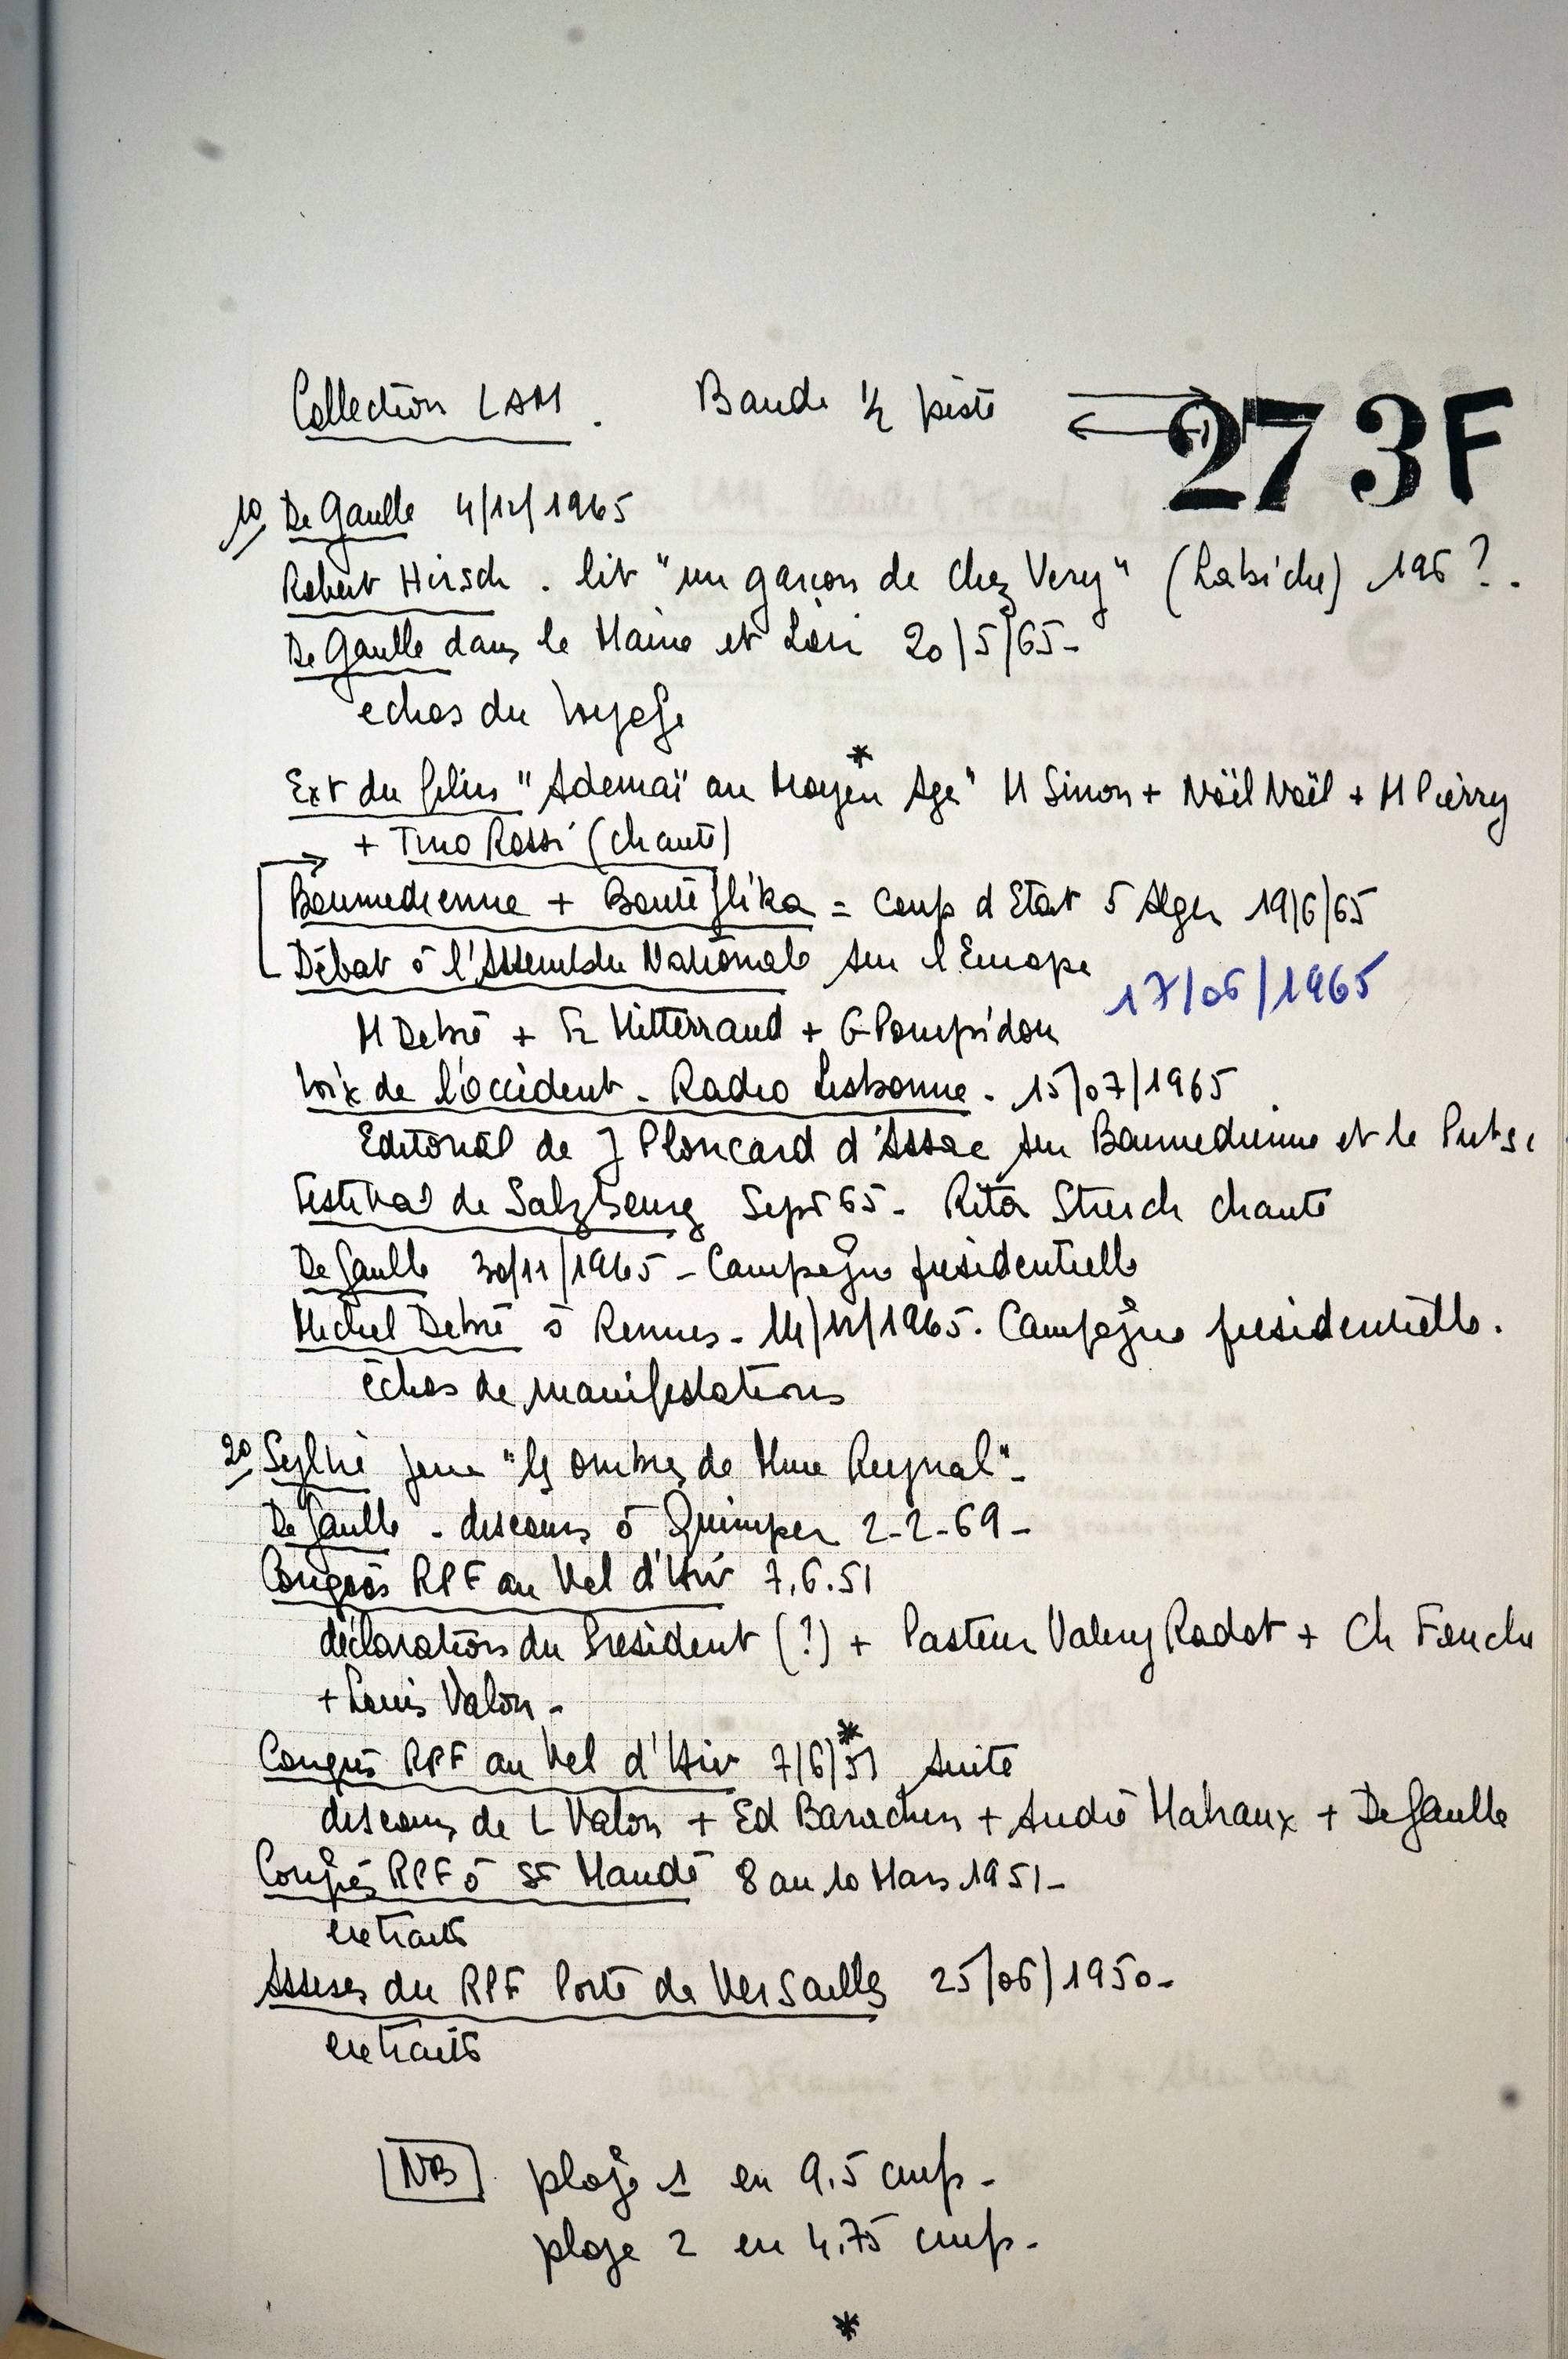 Collection LAM. Bande ½ piste 273F
1º/ De Gaulle 4/12/1965
Robert Hirsch. lit "un garçon de chez Very" (Labiche) 196?.
De Gaulle dans le Maine et Loire 20/5/65-
echos du voyage
Ext du film "Ademaï au Moyen Age" M Simon + Noël Noël + M Pierry
+ Tino Rossi (chante)
Boumedienne + Bouteflika = Coup d'Etat à Alger 19/6/65
Débat à l'Assemblée Nationale sur l'Europe 17/06/1965
M Debré + Fr Mitterrand + G Pompidou
Voix de l'occident - Radio Lisbonne - 15/07/1965
Editorial de J Ploncard d'Assac sur Boumedienne et le
Festival de Salzbourg Sept 65 - Rita Streich chante
De Gaulle 30/11/1965 - Campagne présidentielle
Michel Debré à Rennes - 14/12/1965. Campagne présidentielle.
échos de manifestations
2º/ Sylvie joue "les ombres de Mme Reynal"-
De Gaulle - discours à Quimper 2-2-69-
Congrès RPF au Vel d'Hiv 7.6.51
déclaration du Président (?) + Pasteur Valery Radot + Ch Fouchet
+ Louis Valon -
Congrès RPF au Vel d'Hiv 7/6/51 suite
discours de L Valon + Ed Barachin + André Malraux + De Gaulle
Congrès RPF à St Mandé 8 au 10 Mars 1951-
extraits
Assises du RPF Porte de Versailles 25/06/1950-
extraits
NB plage 1 en 9.5 cmps-
plage 2 en 4.75 cmps-